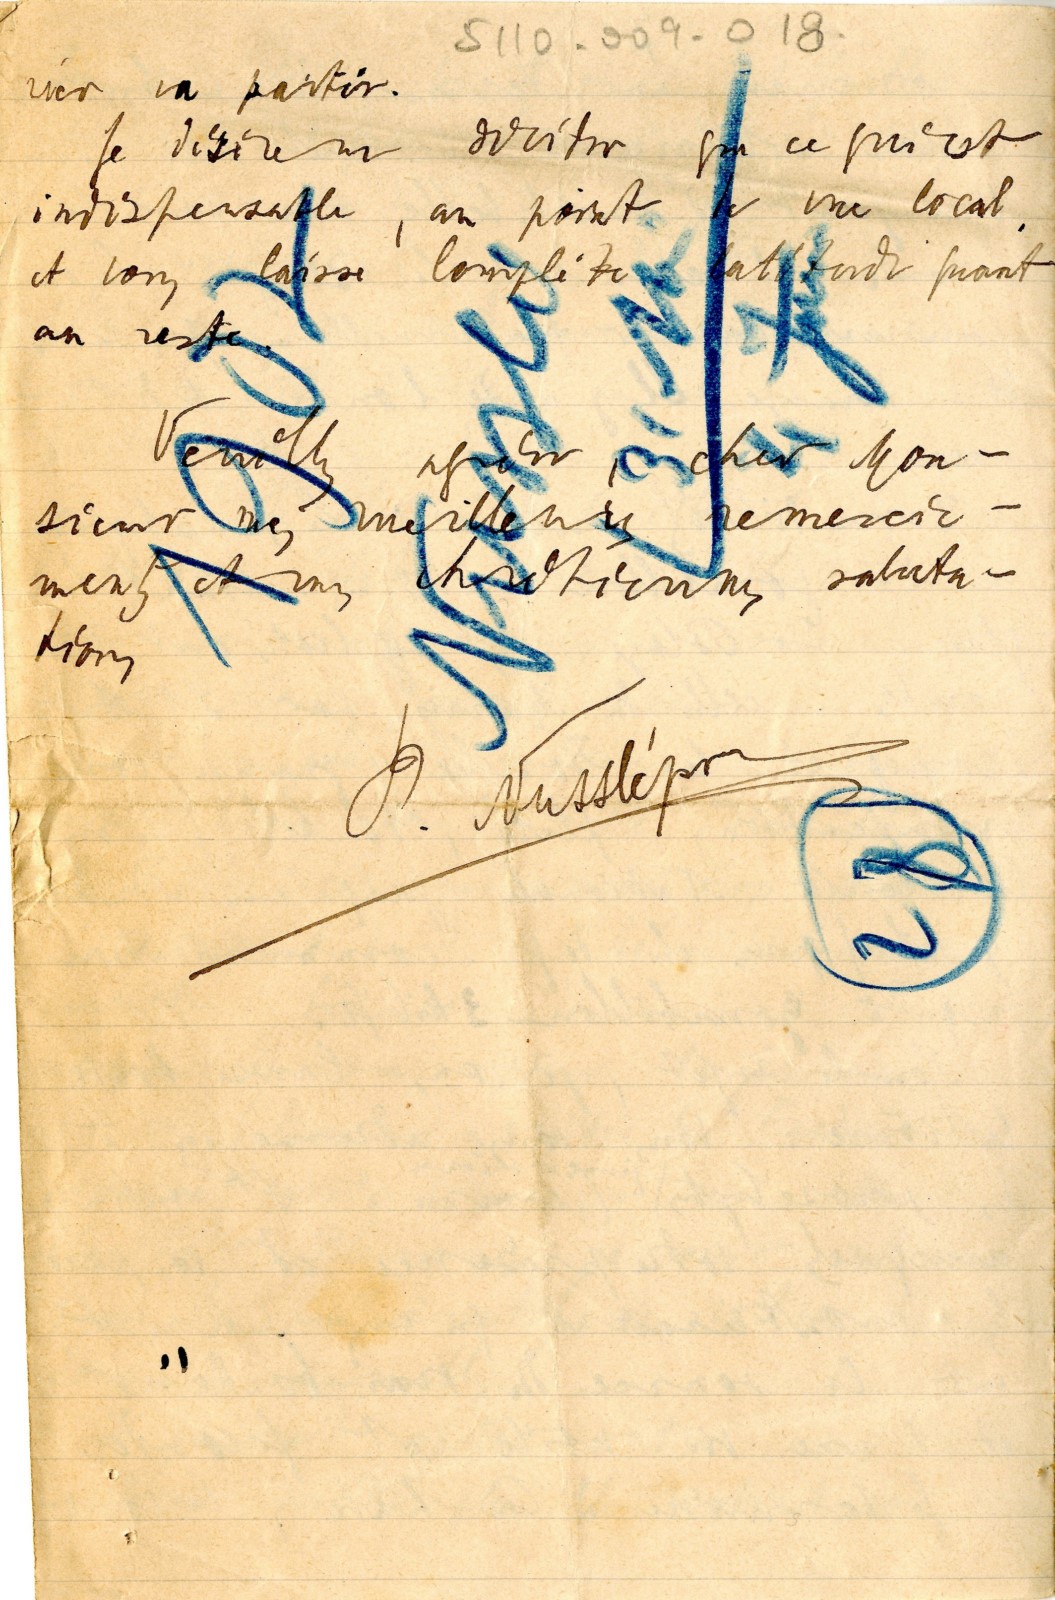 5110-009-018.
rier va partir.
Je désire ne décider que ce qui est
indispensable, au point de vue local,
et vous laisse complète latitude quant
au reste.
Veuillez agréer, cher Mon-
sieur mes meilleurs remercie-
ments et mes chrétiennes saluta-
tions
P. Nusslé
1902
Nusslé
28